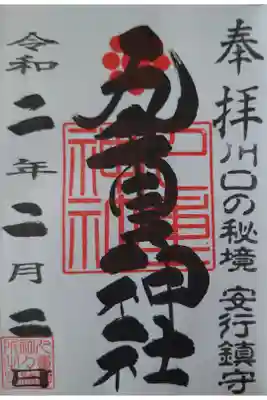 奉拝
川口の秘境 安行鎮守
九重神社
令和二年二月二日